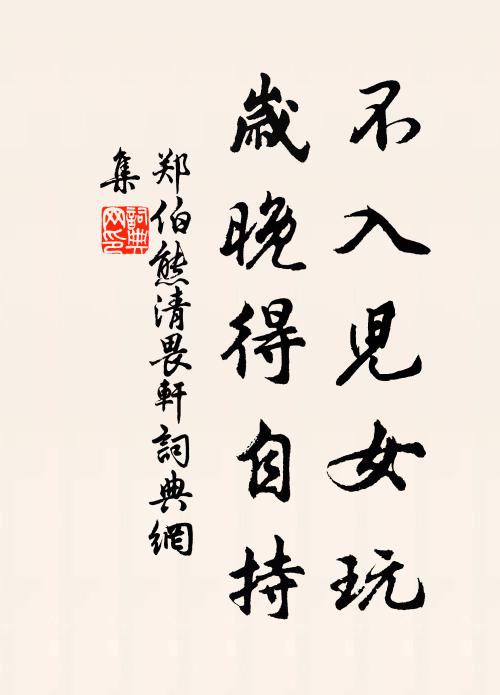 不入児女玩
歳晚得自持
郑伯熊清畏軒詞典網
集
詞典
网印